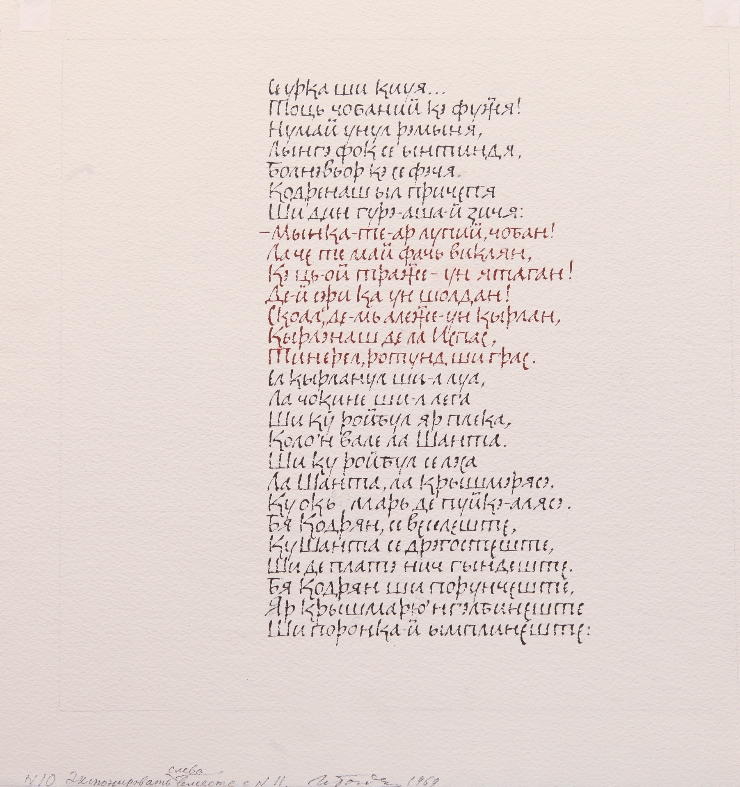 Се урка ши киуя...
Тоць чобаний кэ фужя!
Нумай унул рэмыня,
Лынгэ фок се ынтиндя,
Болнэвьор кэ се фэчя.
Кодренаш ыл причепя
Ши дин гурэ-аша-й зичя:
–Мынка-те-ар лупий, чобан!
Ла че те май фачь виклян,
Кэ ць-ой траже-ун ятаган!
Де-й фи ка ун шолдан!
Скоал, де-мь алеже-ун кырлан,
Кырлэнаш де ла Испас,
Тинерел, ротунд ши грас.
Ел кырланул ши-л луа,
Ла чокине ши-л лега
Ши ку ройбул яр плека,
Коло'н вале ла Шанта.
Ши ку ройбул се лэса
Ла Шанта, ла крышмэряса,
Ку окь марь, де пуйкэ-аляса.
Бя Кодрян, се веселеште,
Ку Шанта се дрэгостеште,
Ши де платэ нич гындеште.
Бя Кодрян ши порунчеште,
Яр крышмарю'н гэлбинеште
Ши поронка-й ымплинеште:
N10 Экспонировать слева вместе с N 11. 1969